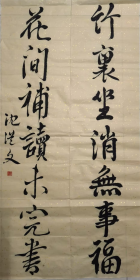 竹裏坐消無事福
花間補讀未完書
沈瀅文